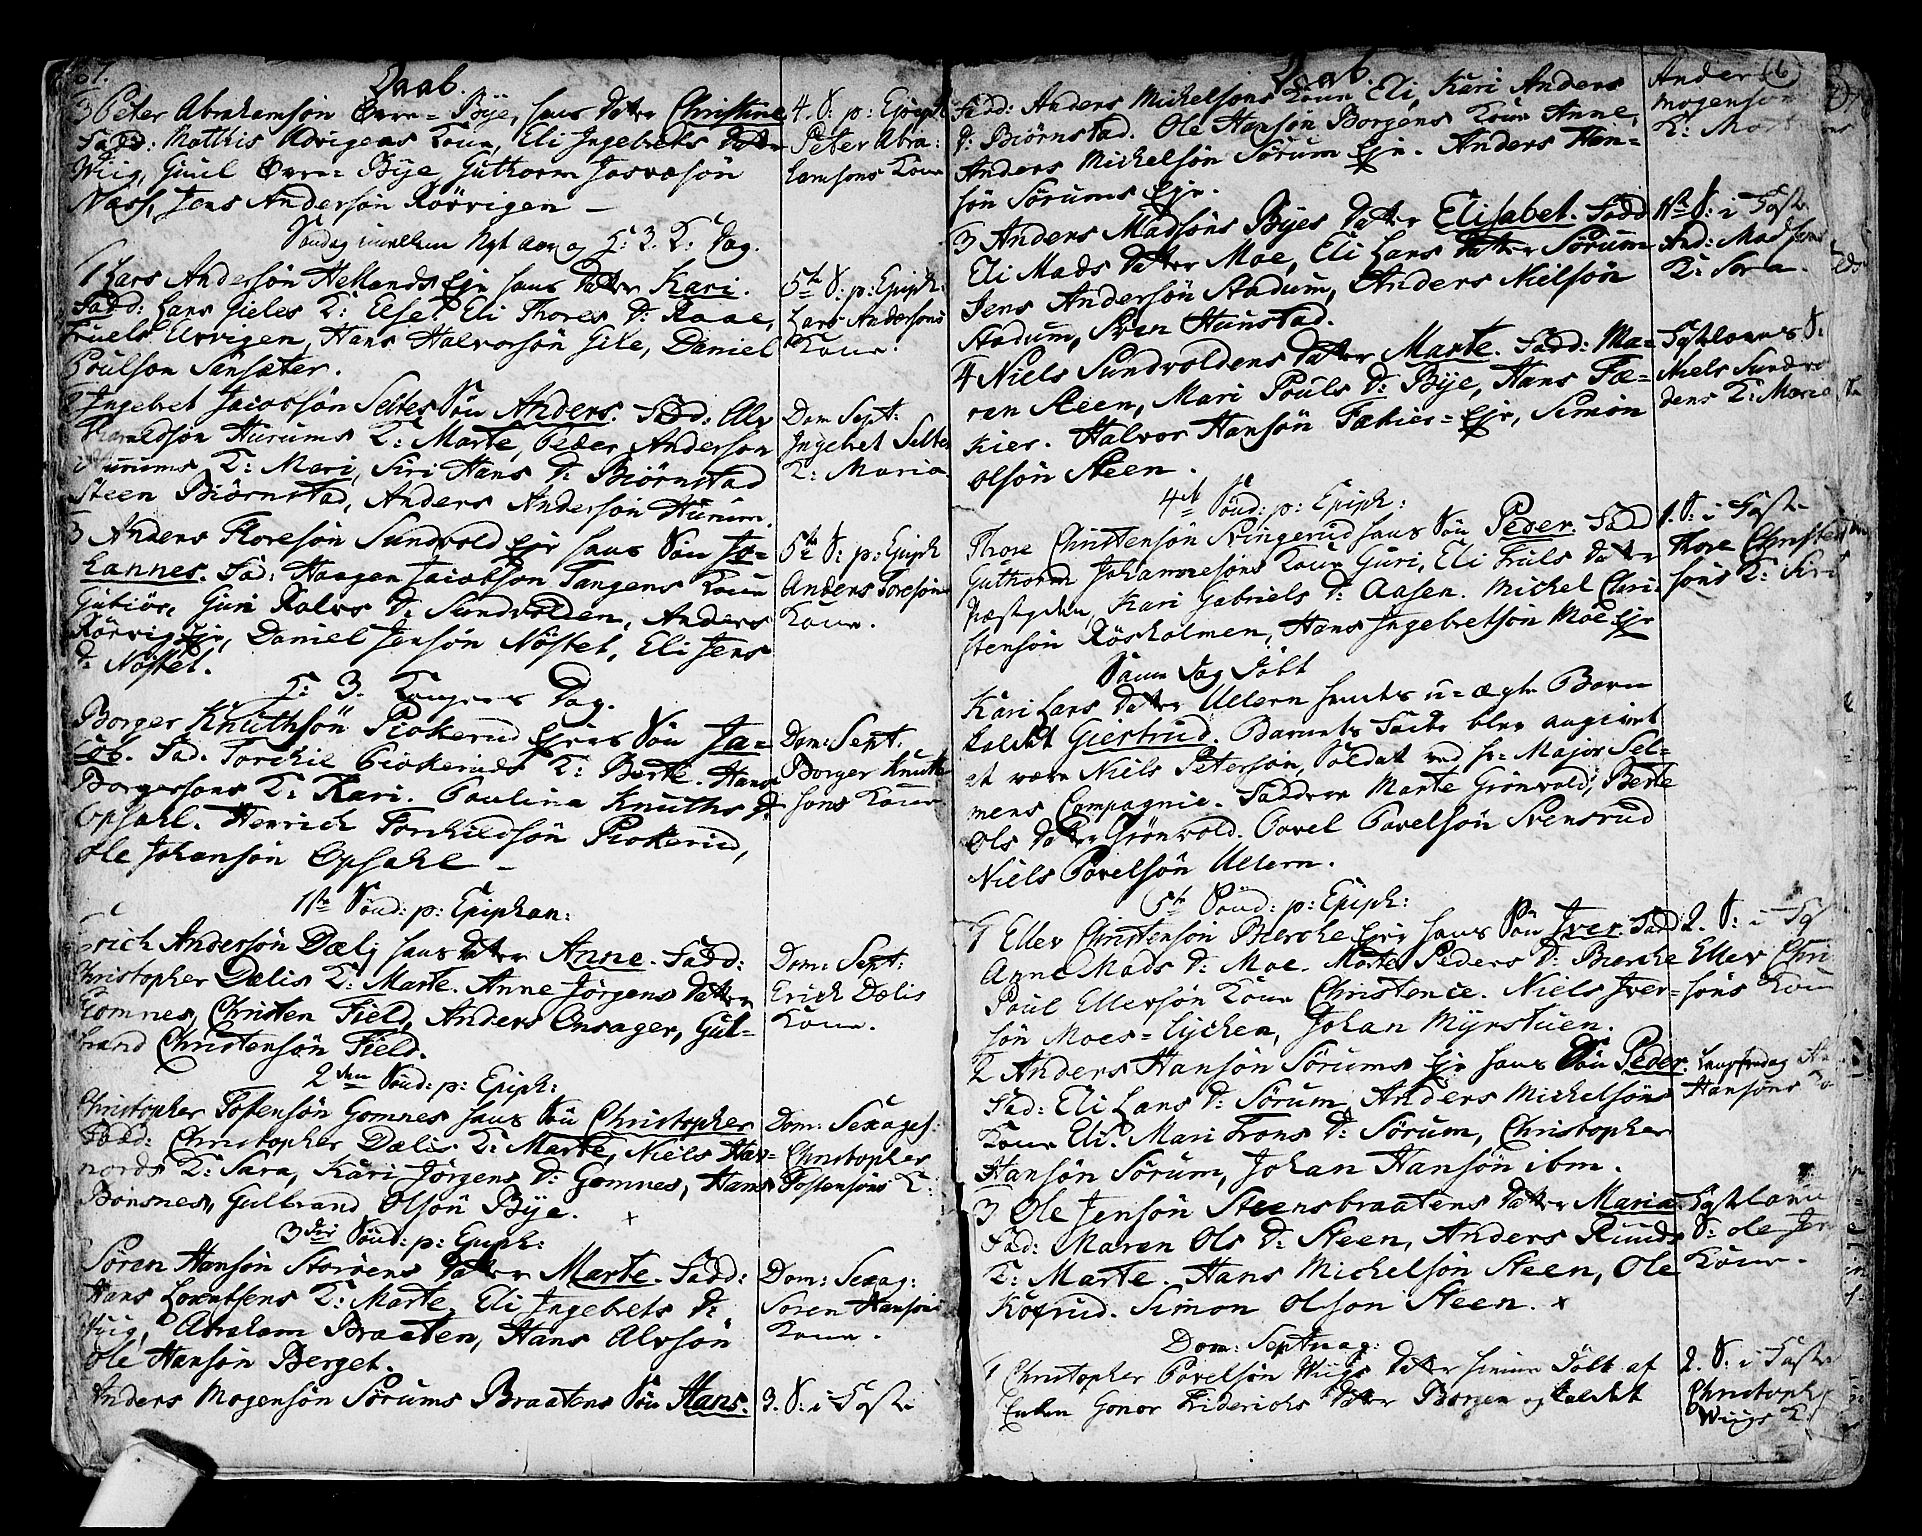 Daab.
3 Peter Abrahamsön Øvre=Bÿe, hans Datter Christine
Fadd: Matthis Korigens Kone, Eli Ingebrets Datter
Wiig, Guul Øvre=Bÿe, Guthorm
Næss, Jens Andersön Rörvigen —
Söndag imellem Nyt aar og H: 3. K: Dag.
1 Lars Andersön Hellands Ejer hans Datter Kari.
Fadd: Hans Gieles K: Else, Eli Thores D: Raae,
Truels Ulvigen, Hans Halvorsön Gile, Daniel
Poulson Sensæter.
2 Ingebret Jacobsön Seltes Sön Anders. Fadd: Alv
Haraldsön Hurums K: Marte, Peder Anderson
Hurums K: Mari, Siri Hans D: Biörnstad
Steen Biörnstad, Anders Andersön Hurum.
3 Anders Thoresön Sundvold Ejer hans Sön Jo=
hannes. Fad: Haagen Jacobsön Tangens Kone
Gubiör, Guri Rolvs D: Sundvolden, Anders
Rörvig Ejer, Daniel Jensön Nöstet, Eli Jens
D: Nöstet.
H: 3. Kongers Dag.
Borger Knuthsön Piokerud Ejers Sön Ja=
cob. Fad. Torchil Piokeruds K: Berte. Hans
Borgersons K: Kari. Paulina Knuths D:
Opsahl. Henrich Torchildsön Piokerud,
Ole Johansön Opsahl —
1ste Sönd: p: Epiphan:
Erich Andersön Dæli hans Datter Anne. Fadd:
Christopher Dælis K: Marte. Anne Jörgens Datter
Gomnes, Christen Field, Anders Onsager, Gul=
brand Christensön Field.
2den Sönd: p: Epiph:
Christopher Tostensön Gomnes hans Sön Christopher
Fadd: Christopher Dælis K: Marte, Niels Hav=
nords K: Sara, Kari Jörgens D: Gomnes, Hans
Bönsnes, Gulbrand Olsön Bÿe.
3die Sönd: p: Epiph:
Sören Hansön Storöens Datter Marte. Fadd:
Hans Lorentsens K: Marte, Eli Ingebrets D:
Wiig, Abraham Braaten, Hans Alvsön
Ole Hansön Berget.
Anders Mogensön Sörums Braatens Sön Hans.
4. S. p: Epiph:
Peter Abra=
hamsons Kone
5te S: p: Epiph:
Lars Andersöns
Kone.
Dom Sept:
Ingebret Selte
K: Maria
5te S: p: Epiph
Anders Toresöns
Kone.
Dom: Sept.
Borger Knuth
sons Kone
Dom: Sept:
Erich Dælis
Kone.
Dom: Sexages:
Christopher
Tostensöns K:
Dom: Sexag:
Soren Hansöns
Kone.
3. S: i Faste
Daab.
Fadd: Anders Michelsöns Kone Eli, Kari Anders
D: Biörnstad. Ole Hansön Borgens Kone Anne,
Anders Michelsön Sörum Ejer. Anders Han=
sön Sörums Ejer.
3 Anders Madsöns Bÿes Datter Elisabet. Fadd
Eli Mads Datter Moe, Eli Hans Datter Sörum
Jens Andersön Stadum, Anders Nielsön
Stadum, Sven Hunstad.
4 Niels Sundvoldens Datter Marte. Fadd: Ma=
ren Steen, Mari Pouls D: Bÿe, Hans Fæ=
kier. Halvor Hansön Fækier=Ejer, Simon
Olsön Steen.
4de Sönd: p: Epiph:
Thore Christensön Svingerud hans Sön Peder. Fadd
Guthorm Johannesöns Kone Guri, Eli Truls Datter
Præstgden, Kari Gabriels D: Aasen. Michel Chri=
stensön Röskolmen, Hans Ingebretsön Moe Ejer
Samme Dag Döbt
Kari Lars Datter Ullern hendes u=ægte Barn
kaldet Giertrud. Barnets Fader blev angivet
at være Niels Peterson, Soldat ved Hr: Major Sel=
mens Compagnie. Faddere Marte Grönvold, Berte
Ols Datter Grönvold. Povel Povelsön Svensrud
Niels Povelsön Ullern.
5te Sönd: p: Epiph:
1 Ellev Christenson Bierche Ejer hans Sön Iver. Fadd
Anne Mads D: Moe. Marte Peders D: Bierche
Poul Ellevsön Kone Christence. Niels Iver=
sön Moes=Eychen, Johan Mÿrstuen.
2 Anders Hansön Sörums Ejer hans Sön Peder.
Fad: Eli Hans D: Sörum, Anders Michelsöns
Kone Eli. Mari Frans D: Sörum, Christopher
Hansön Sörum, Johan Hansön ibm.
3 Ole Jensön Steensbraatens Datter Maria
Fad: Maren Ols D: Steen, Anders Ruuds
K: Marte. Hans Michelsön Steen, Ole
Koxrud. Simon Olson Steen. x
Dom: Septuag:
1 Christopher Povelsön Wiigs Datter hiemme Döbt af
Enken Gonor Friderichs Datter Borgen og kaldet
6
Ander
Mogenso
K: Mor
1ste S: i Faste
And: Madsens
K: Sara.
Fastelavns S:
Niels Sundvo
dens K: Marie
1. S: i Faste
Thore Christen
söns K: Siri
2. S: i Fast
Ellev Chri
söns Kone
Langfredag
Hansöns Ko
Fastelavns
S: Ole Jen
Kone.
2. S: i Faste
Christoph
Wiigs K: